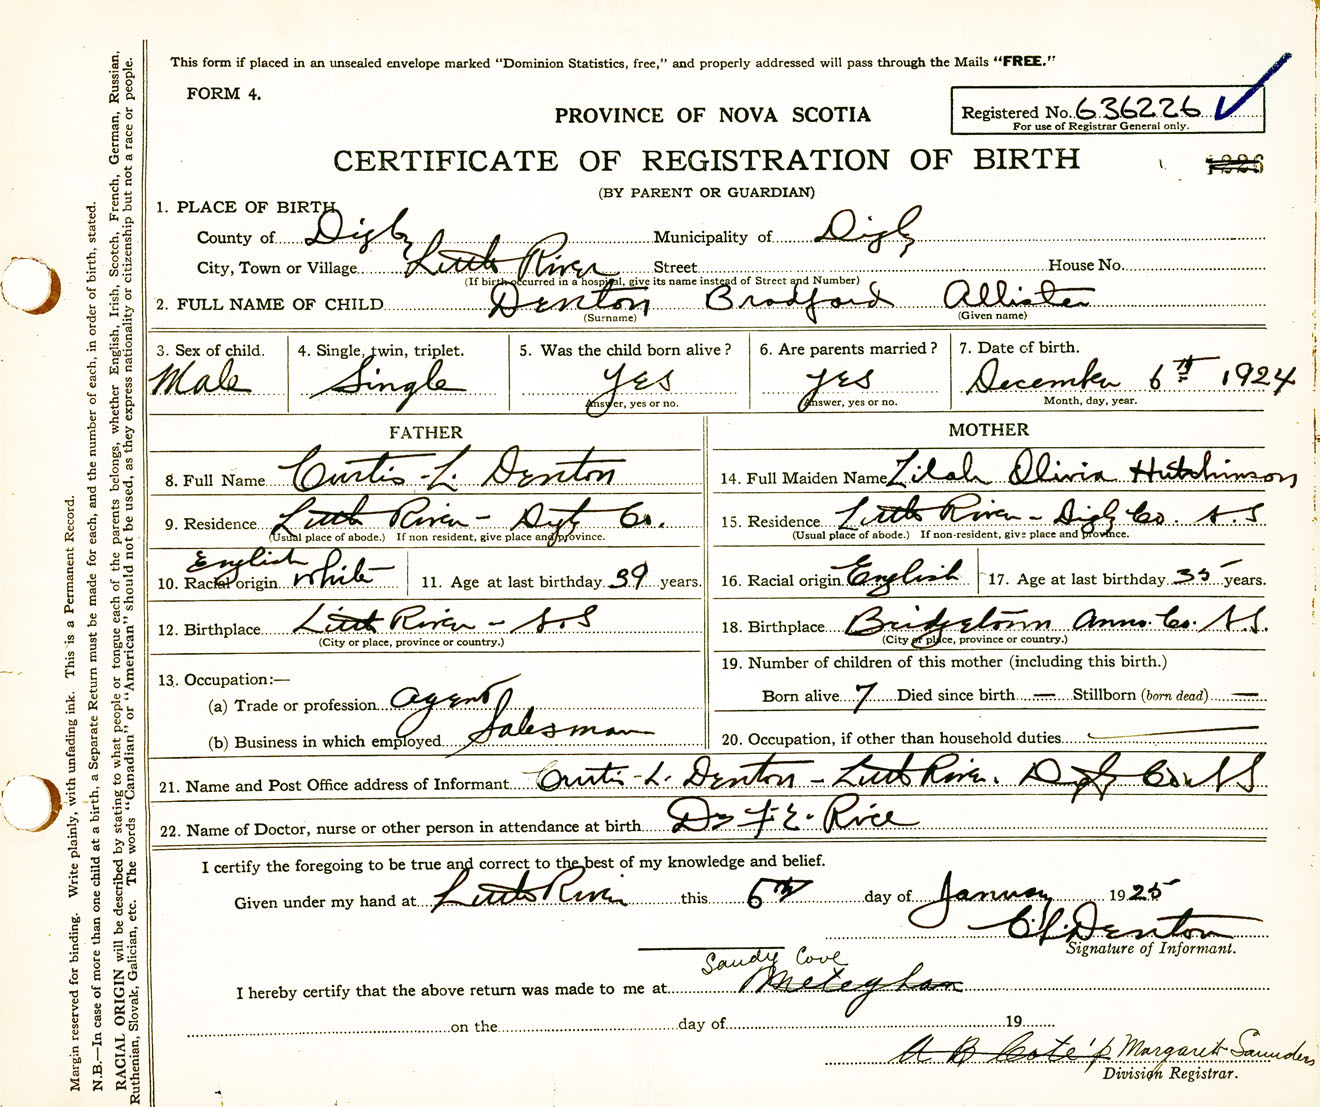 This form if placed in an unsealed envelope marked "Dominion Statistics, free," and properly addressed will pass through the Mails "FREE."
FORM 4.
PROVINCE OF NOVA SCOTIA
Registered No. 636226
For use of Registrar General only.
CERTIFICATE OF REGISTRATION OF BIRTH
(BY PARENT OR GUARDIAN)
1. PLACE OF BIRTH
County of Digby Municipality of Digby
City, Town or Village Little River Street House No.
(If birth occurred in a hospital, give its name instead of Street and Number)
2. FULL NAME OF CHILD Denton Bradford Allister
(Surname) (Given name)
3. Sex of child. 4. Single, twin, triplet. 5. Was the child born alive? 6. Are parents married? 7. Date of birth.
Male Single yes yes December 6th 1924
Answer, yes or no. Answer, yes or no. Month, day, year.
FATHER
8. Full Name Curtis L. Denton
9. Residence Little River - Digby Co.
(Usual place of abode.) If non resident, give place and province.
English
10. Racial origin white 11. Age at last birthday 39 years.
12. Birthplace Little River - N.S
(City or place, province or country.)
13. Occupation:—
(a) Trade or profession agent
(b) Business in which employed Salesman
MOTHER
14. Full Maiden Name Zilah Olivia Hutchinson
15. Residence Little River - Digby Co. N.S
(Usual place of abode.) If non-resident, give place and province.
16. Racial origin English 17. Age at last birthday 35 years.
18. Birthplace Bridgetown Anna. Co. N.S.
(City of place, province or country.)
19. Number of children of this mother (including this birth.)
Born alive 7 Died since birth — Stillborn (born dead) —
20. Occupation, if other than household duties
21. Name and Post Office address of Informant Curtis L. Denton - Little River. Digby Co. N S
22. Name of Doctor, nurse or other person in attendance at birth Dr F. E. Rice
I certify the foregoing to be true and correct to the best of my knowledge and belief.
Given under my hand at Little River this 6th day of January 1925
C. L. Denton
Signature of Informant.
Sandy Cove
I hereby certify that the above return was made to me at Meteghan
on the day of 19
A B Cote' p Margaret Saunders
Division Registrar.
Margin reserved for binding. Write plainly, with unfading ink. This is a Permanent Record.
N.B.—In case of more than one child at a birth, a Separate Return must be made for each, and the number of each, in order of birth, stated.
RACIAL ORIGIN will be described by stating to what people or tongue each of the parents belongs, whether English, Irish, Scotch, French, German, Russian,
Ruthenian, Slovak, Galician, etc. The words "Canadian" or "American" should not be used, as they express nationality or citizenship but not a race or people.